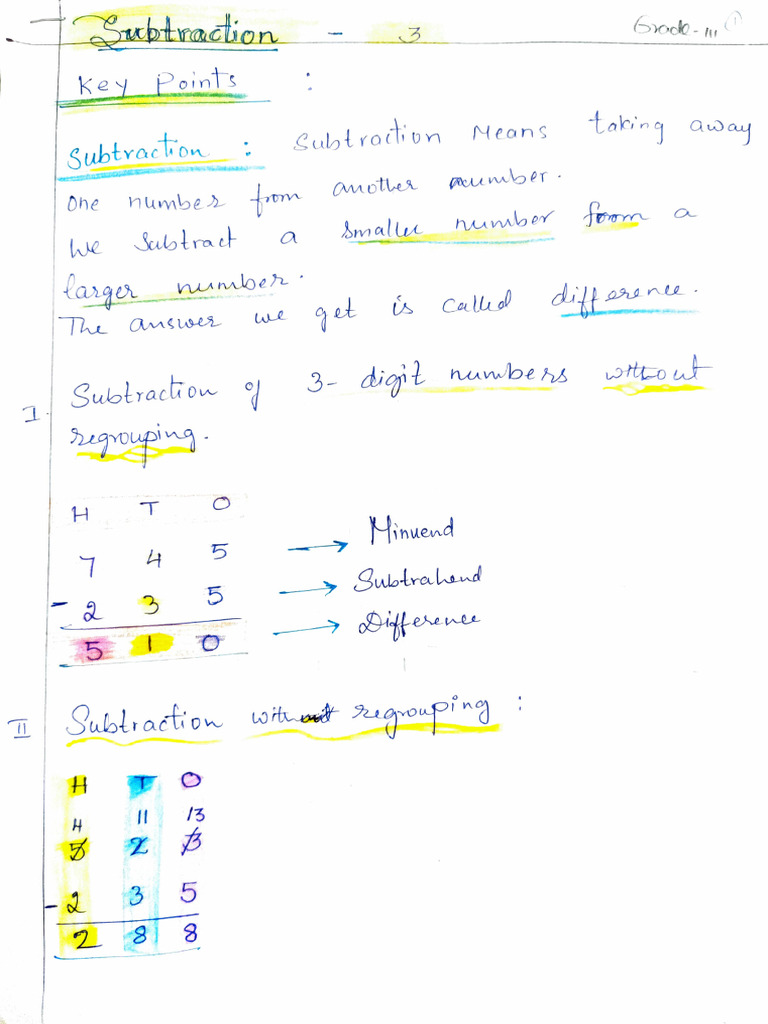 Subtraction - 3 Grade-III 1
Key Points :
Subtraction : Subtraction Means taking away
one number from another number.
We subtract a smaller number from a
larger number.
The answer we get is called difference.
I. Subtraction of 3-digit numbers without
regrouping.
H T O
7 4 5 → Minuend
- 2 3 5 → Subtrahend
5 1 0 → Difference
II Subtraction with regrouping :
H T O
4 11 13
5 2 3
- 2 3 5
2 8 8